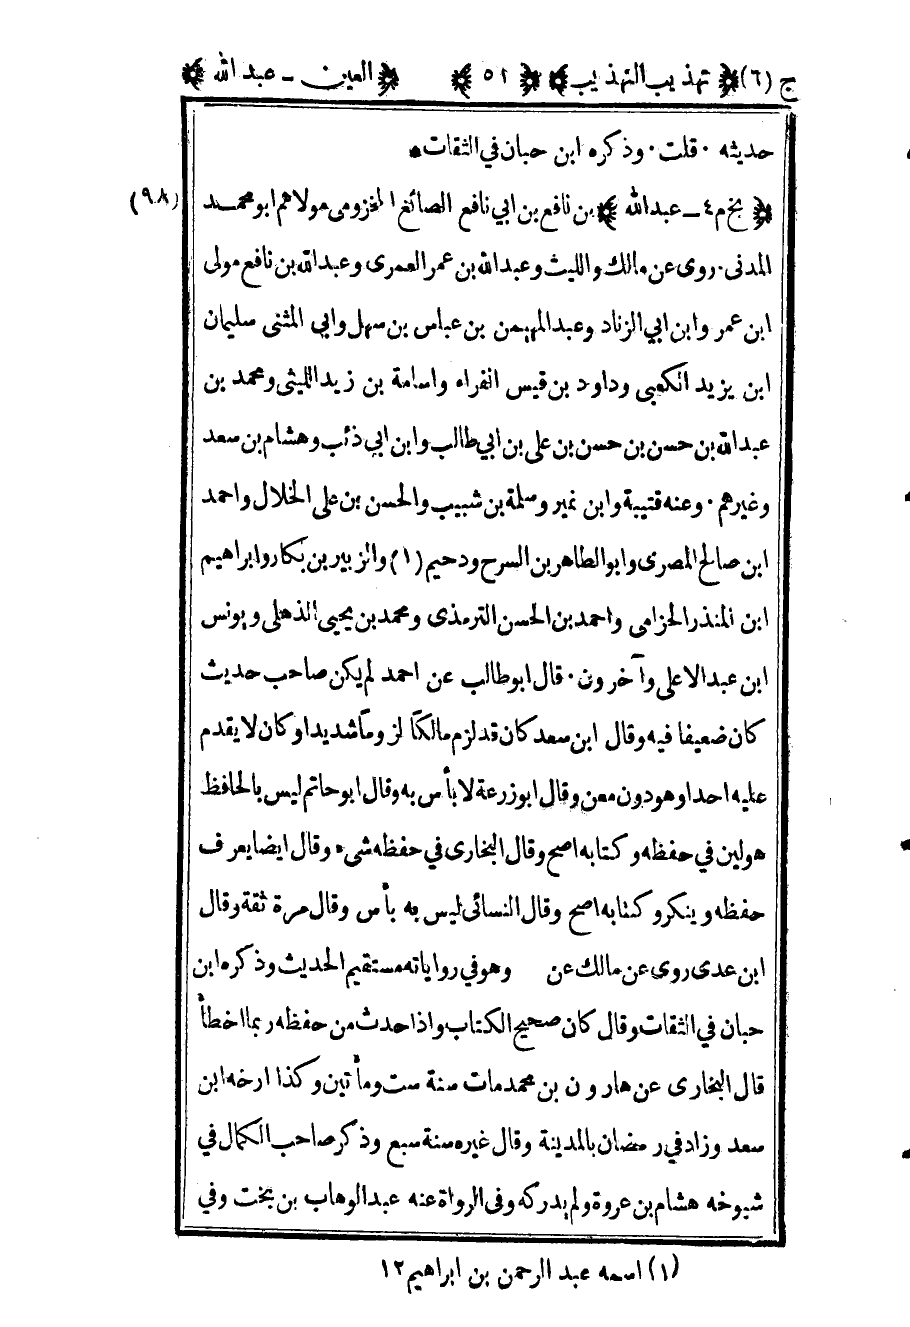 ج (٦) ﴿ تهذيب التهذيب ﴾ ﴿ ٥١ ﴾ ﴿ العين - عبد الله ﴾
حديثه ٠ قلت ٠ وذكره ابن حبان في الثقات ٠
(٩٨) ﴿ بخ م ٤ - عبد الله ﴾ بن نافع بن ابي نافع الصائغ المخزومى مولاهم ابو محمد
المدنى ٠ روى عن مالك والليث وعبد الله بن عمر العمرى وعبد الله بن نافع مولى
ابن عمر وابن ابي الزناد وعبد المهيمن بن عباس بن سهل وابي المثنى سليمان
ابن يزيد الكعبى وداود بن قيس الفراء واسامة بن زيد الليثى ومحمد بن
عبد الله بن حسن بن حسن بن على بن ابي طالب وابن ابي ذئب وهشام بن سعد
وغيرهم ٠ وعنه قتيبة وابن نمير وسلمة بن شبيب والحسن بن على الخلال واحمد
ابن صالح المصرى وابو الطاهر بن السرح ودحيم (١) والزبير بن بكار وابراهيم
ابن المنذر الحزامى واحمد بن الحسن الترمذى ومحمد بن يحيى الذهلى ويونس
ابن عبد الاعلى وآخرون ٠ قال ابو طالب عن احمد لم يكن صاحب حديث
كان ضعيفا فيه وقال ابن سعد كان قد لزم مالكاً لزوماً شديدا وكان لا يقدم
عليه احدا وهو دون معن وقال ابو زرعة لا بأس به وقال ابو حاتم ليس بالحافظ
هو لين في حفظه وكتابه اصح وقال البخارى في حفظه شيء وقال ايضا يعرف
حفظه وينكر وكتابه اصح وقال النسائى ليس به بأس وقال مرة ثقة وقال
ابن عدى روى عن مالك عن وهو في رواياته مستقيم الحديث وذكره ابن
حبان في الثقات وقال كان صحيح الكتاب واذا حدث من حفظه ربما اخطأ
قال البخارى عن هارون بن محمد مات سنة ست ومأتين وكذا ارخه ابن
سعد وزاد في رمضان بالمدينة وقال غيره سنة سبع وذكر صاحب الكمال في
شيوخه هشام بن عروة ولم يدركه وفى الرواة عنه عبد الوهاب بن بخت وفي
(١) اسمه عبد الرحمن بن ابراهيم ١٢